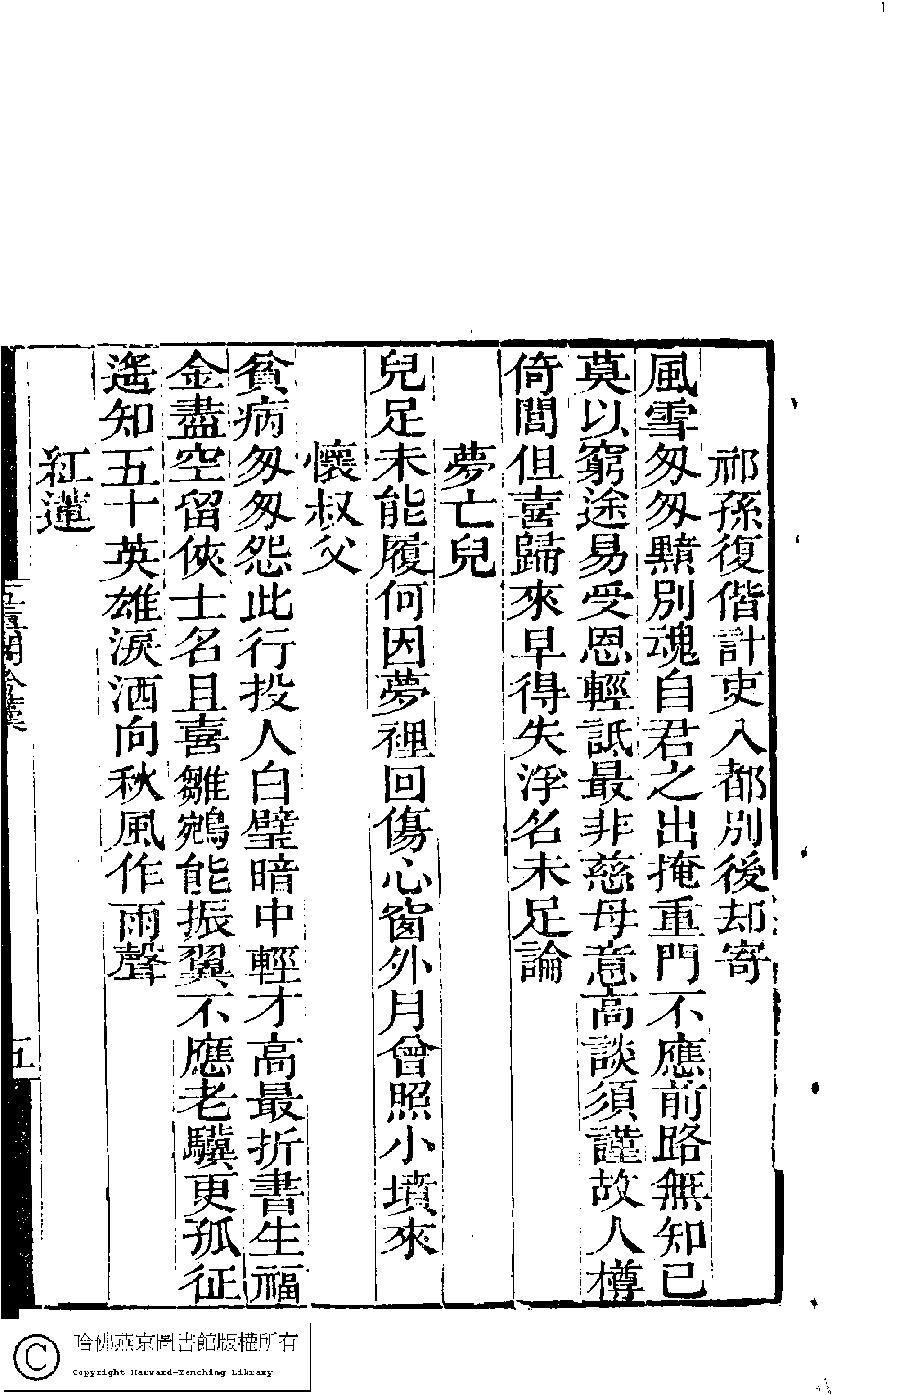 1
祁孫復偕計吏入都別後却寄
風雪匆匆黯別魂自君之出掩重門不應前路無知已
莫以窮途易受恩輕詆最非慈母意高談須謹故人樽
倚閭但喜歸來早得失浮名未足論
夢亡兒
兒足未能履何因夢裡回傷心窗外月曾照小墳來
懷叔父
貧病匆匆怨此行投人白璧暗中輕才高最折書生福
金盡空留俠士名且喜雛鵷能振翼不應老驥更孤征
遙知五十英雄淚洒向秋風作雨聲
紅蓮
五
哈佛燕京圖書館版權所有
Copyright Harvard-Yenching Library